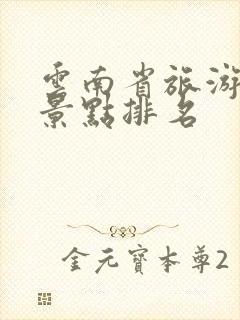 雲南省旅游
景點排名
金元寶本尊2